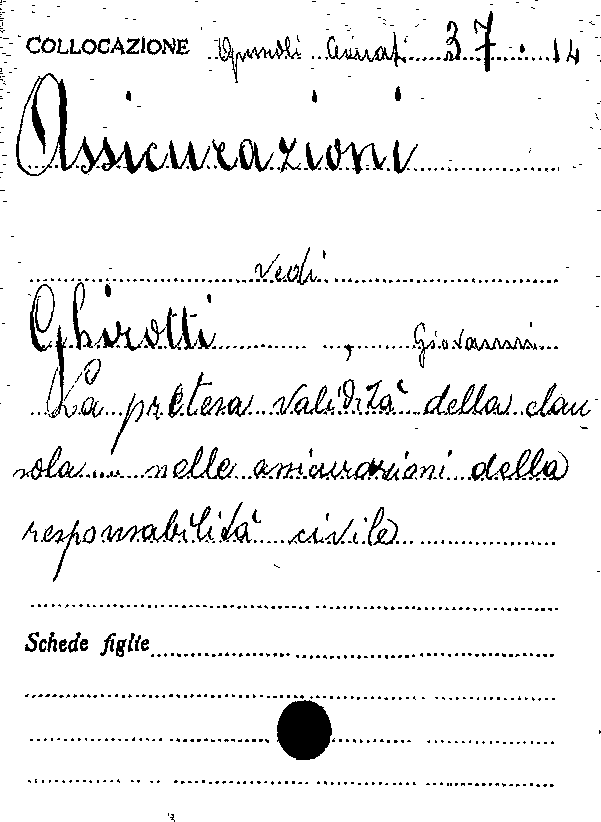 COLLOCAZIONE Opuscoli Avvocati 37.14
Assicurazioni
vedi
Ghirotti, Giovanni
La pretesa validità della clau
sola ... nelle assicurazioni della
responsabilità civile
Schede figlie